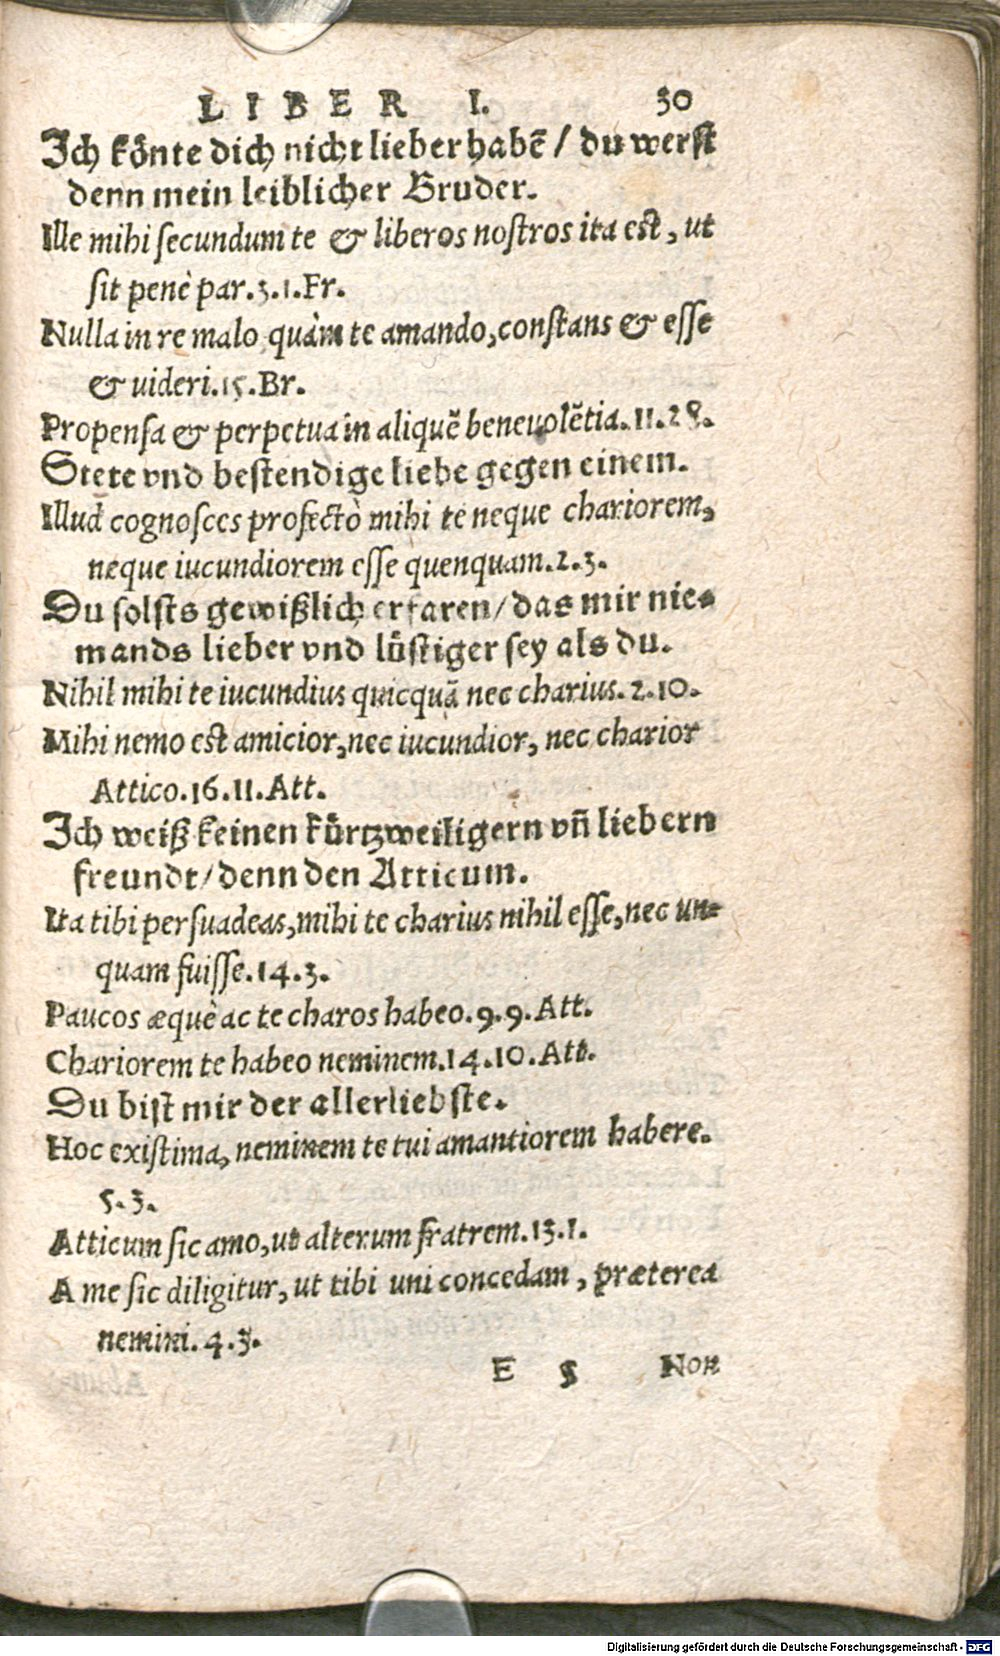 LIBER I. 30
Ich kön te dich nicht lieber habē / du werst
denn mein leiblicher Bruder.
Ille mihi secundum te & liberos nostros ita est, ut
sit penè par.3.1.Fr.
Nulla in re malo quàm te amando, constans & esse
& uideri.15.Br.
Propensa & perpetua in aliquē beneuolētia.11.28.
Stete vnd bestendige liebe gegen einem.
Illud cognosces profectò mihi te neque chariorem,
neque iucundiorem esse quenquam.2.3.
Du solsts gewißlich erfaren / das mir nie=
mands lieber vnd lüstiger sey als du.
Nihil mihi te iucundius quicquā nec charius.2.10.
Mihi nemo est amicior, nec iucundior, nec charior
Attico.16.11.Att.
Ich weiß keinen kürtzweiligern vñ liebern
freundt / denn den Atticum.
Ita tibi persuadeas, mihi te charius nihil esse, nec un=
quam fuisse.14.3.
Paucos æquè ac te charos habeo.9.9.Att.
Chariorem te habeo neminem.14.10.Att.
Du bist mir der allerliebste.
Hoc existima, neminem te tui amantiorem habere.
5.3.
Atticum sic amo, ut alterum fratrem.13.1.
A me sic diligitur, ut tibi uni concedam, præterea
nemini.4.3.
E 5 Non
Digitalisierung gefördert durch die Deutsche Forschungsgemeinschaft - DFG